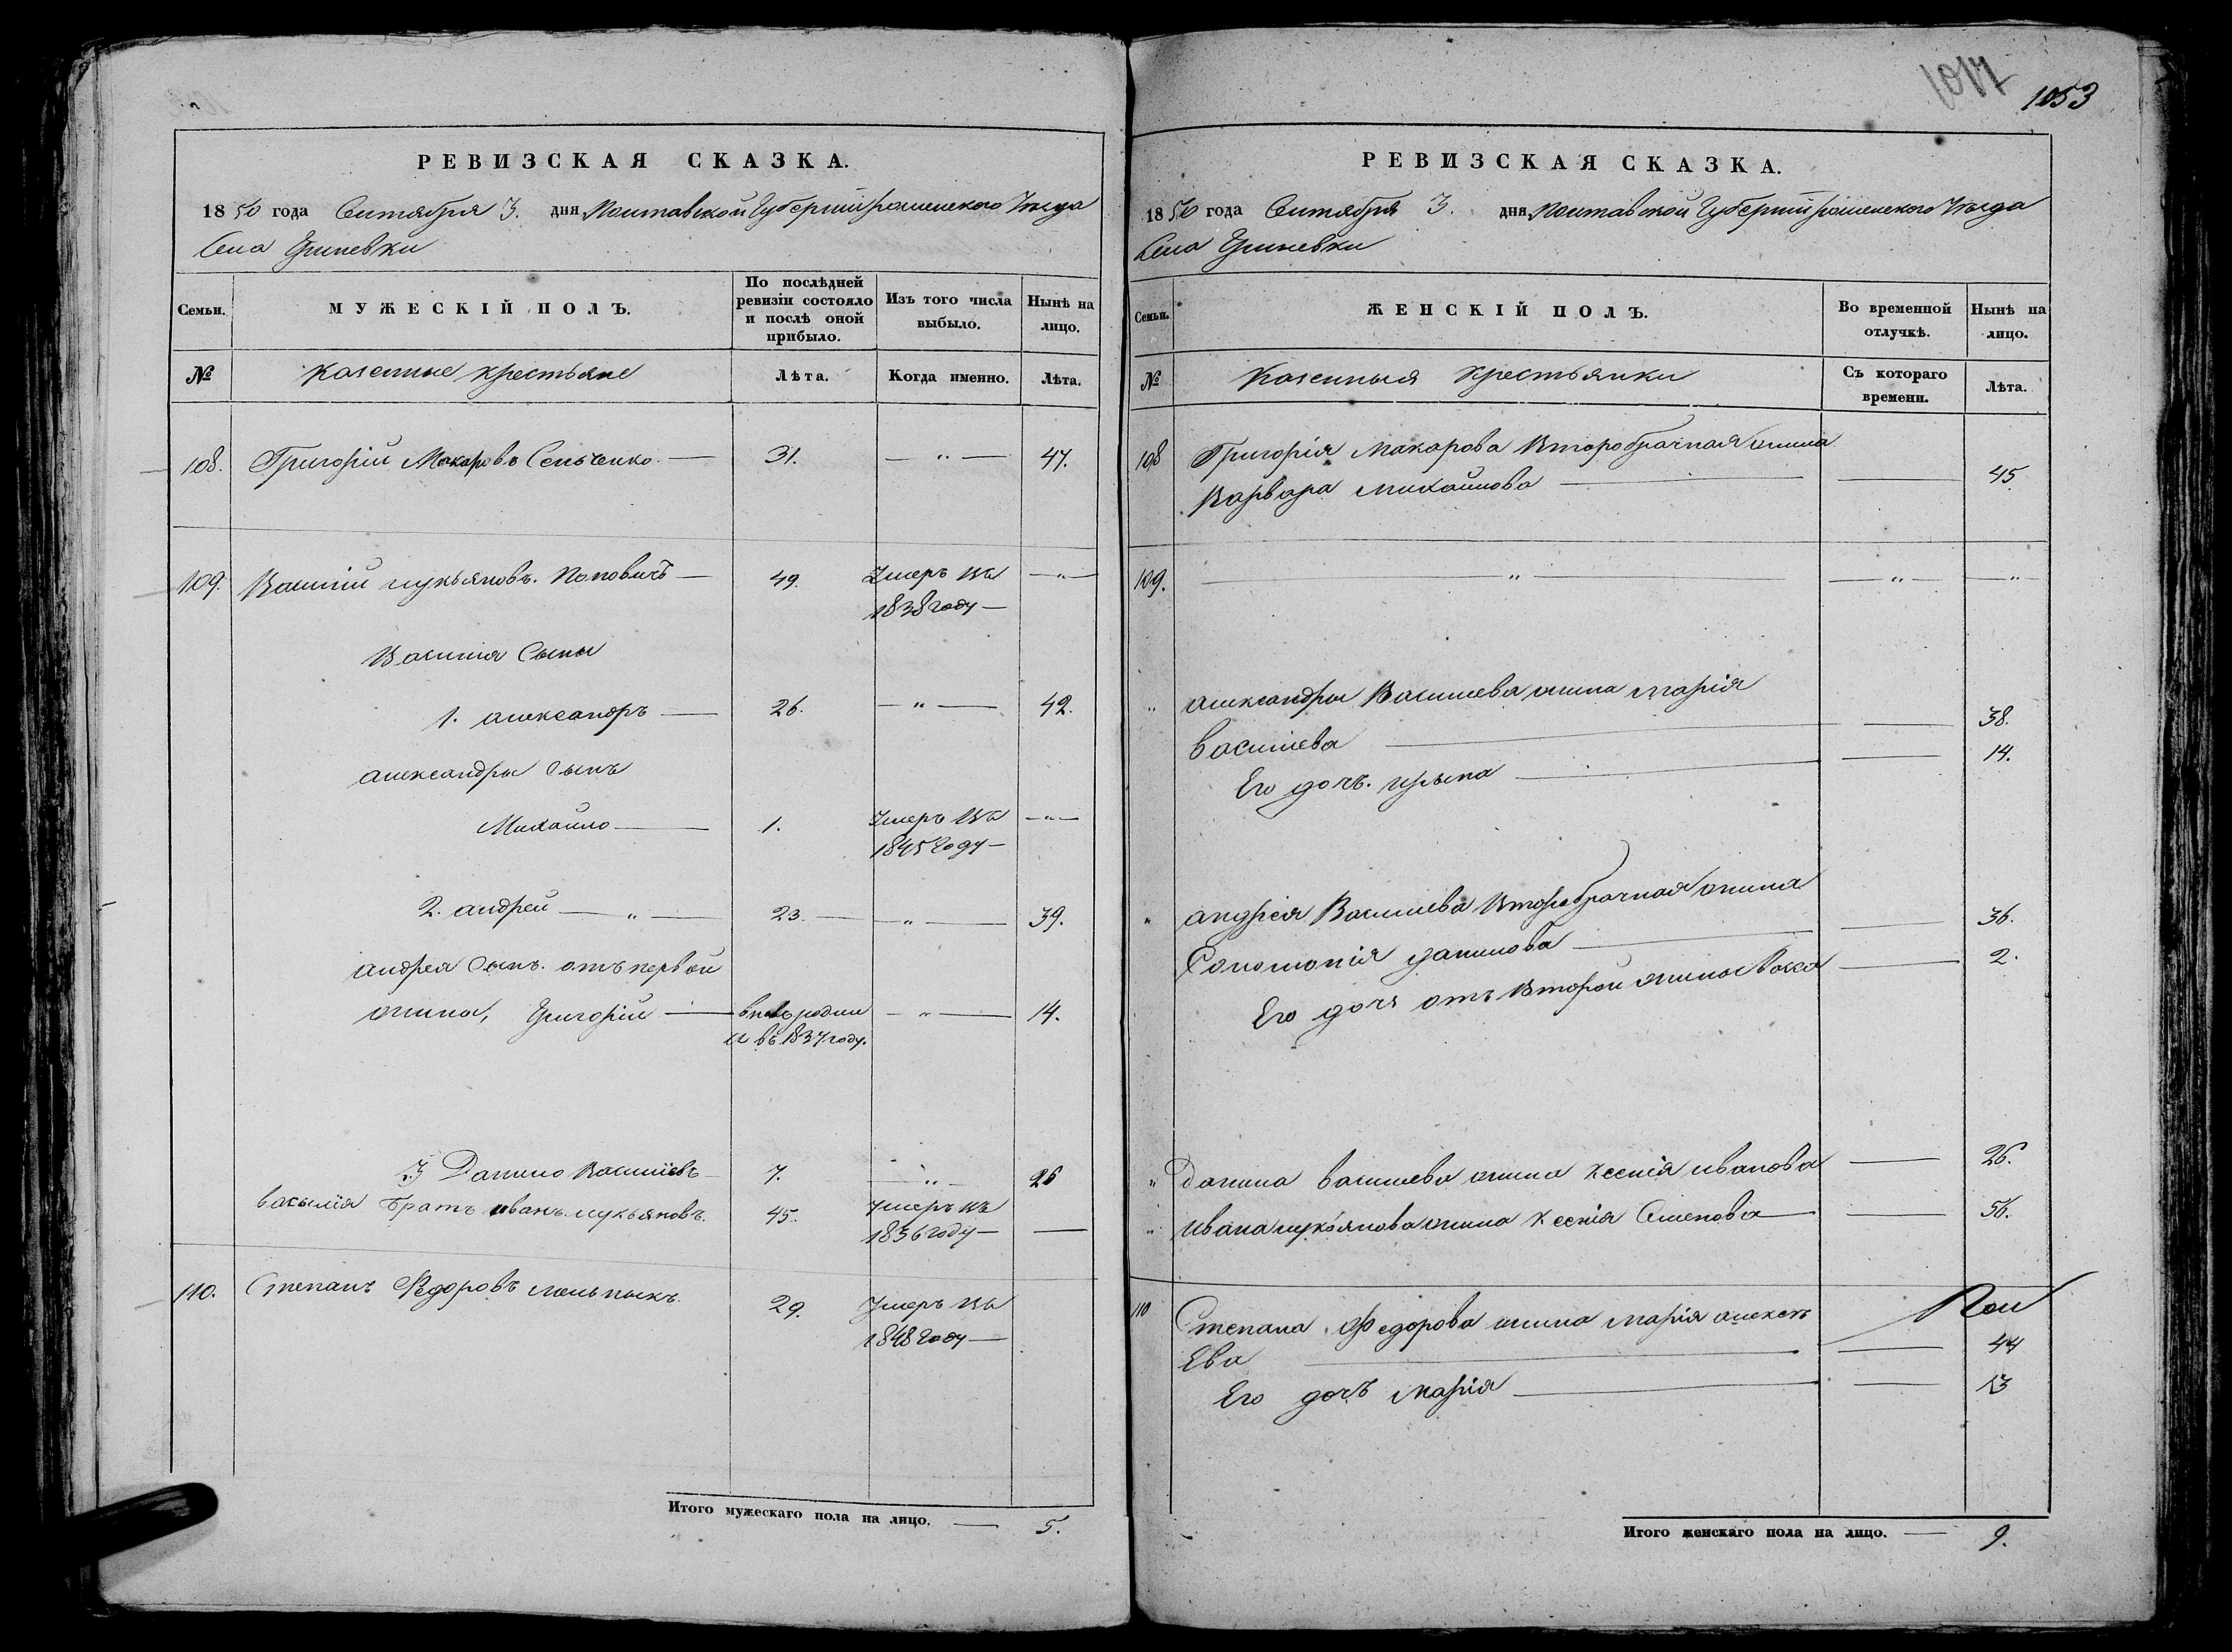 1017
1053
РЕВИЗСКАЯ СКАЗКА.
1850 года Сентября 3. дня Полтавской Губернии роменского Уезда
Села Гриневки
Семьи.
МУЖЕСКІЙ ПОЛЪ.
По послѣдней ревизіи состояло и послѣ оной прибыло.
Изъ того числа выбыло.
Нынѣ на лицо.
№ Казенные крестьяне Лѣта. Когда именно. Лѣта.
108. Григорій Макаровъ Сенченко 31. — " — 47.
109. Василій лукьяновъ. Поповичъ 49. Умеръ въ — " —
1838 году
Василія Сыны
1. александръ 26. — " — 42.
александра Сынъ
Михайло 1. Умеръ въ — " —
1845 году
2. андрей — " — 23. — " — 39.
андрея Сынъ. отъ первой
жины, Григорій вновь родил — " — 14.
ся въ 1837 году.
3 Данило Василіевъ 7. — " — 26
василія Братъ иванъ лукьяновъ. 45. Умеръ въ
1836 году —
110. Степанъ Федоровъ 29. Умеръ въ
1848 году
Итого мужескаго пола на лицо. — 5.
РЕВИЗСКАЯ СКАЗКА.
1850 года Сентября 3. дня Полтавской Губерніи роменского Уезда
Села Гриневки
Семьи.
ЖЕНСКІЙ ПОЛЪ.
Во временной отлучкѣ.
Нынѣ на лицо.
№ Казенныя крестьянки Съ котораго времени. Лѣта.
108 Григорія Макарова Второбрачная жина
Варвара михайлова — 45
109. — " — — " — — " —
" александра Василева жина марія
василева — 38.
Его дочъ. ирына — 14.
" андрея Василева Второбрачная жина
Соломонія данилова — 36.
Его дочь отъ Второй жины Васса — 2.
" Данила василева жина ксенія иванова — 26.
" ивана лукьянова жина ксенія Семенова — 56.
110 Степана Федорова жина марія алексѣ
Ева — 44
Его дочъ марія — 13
Итого женскаго пола на лицо. — 9.